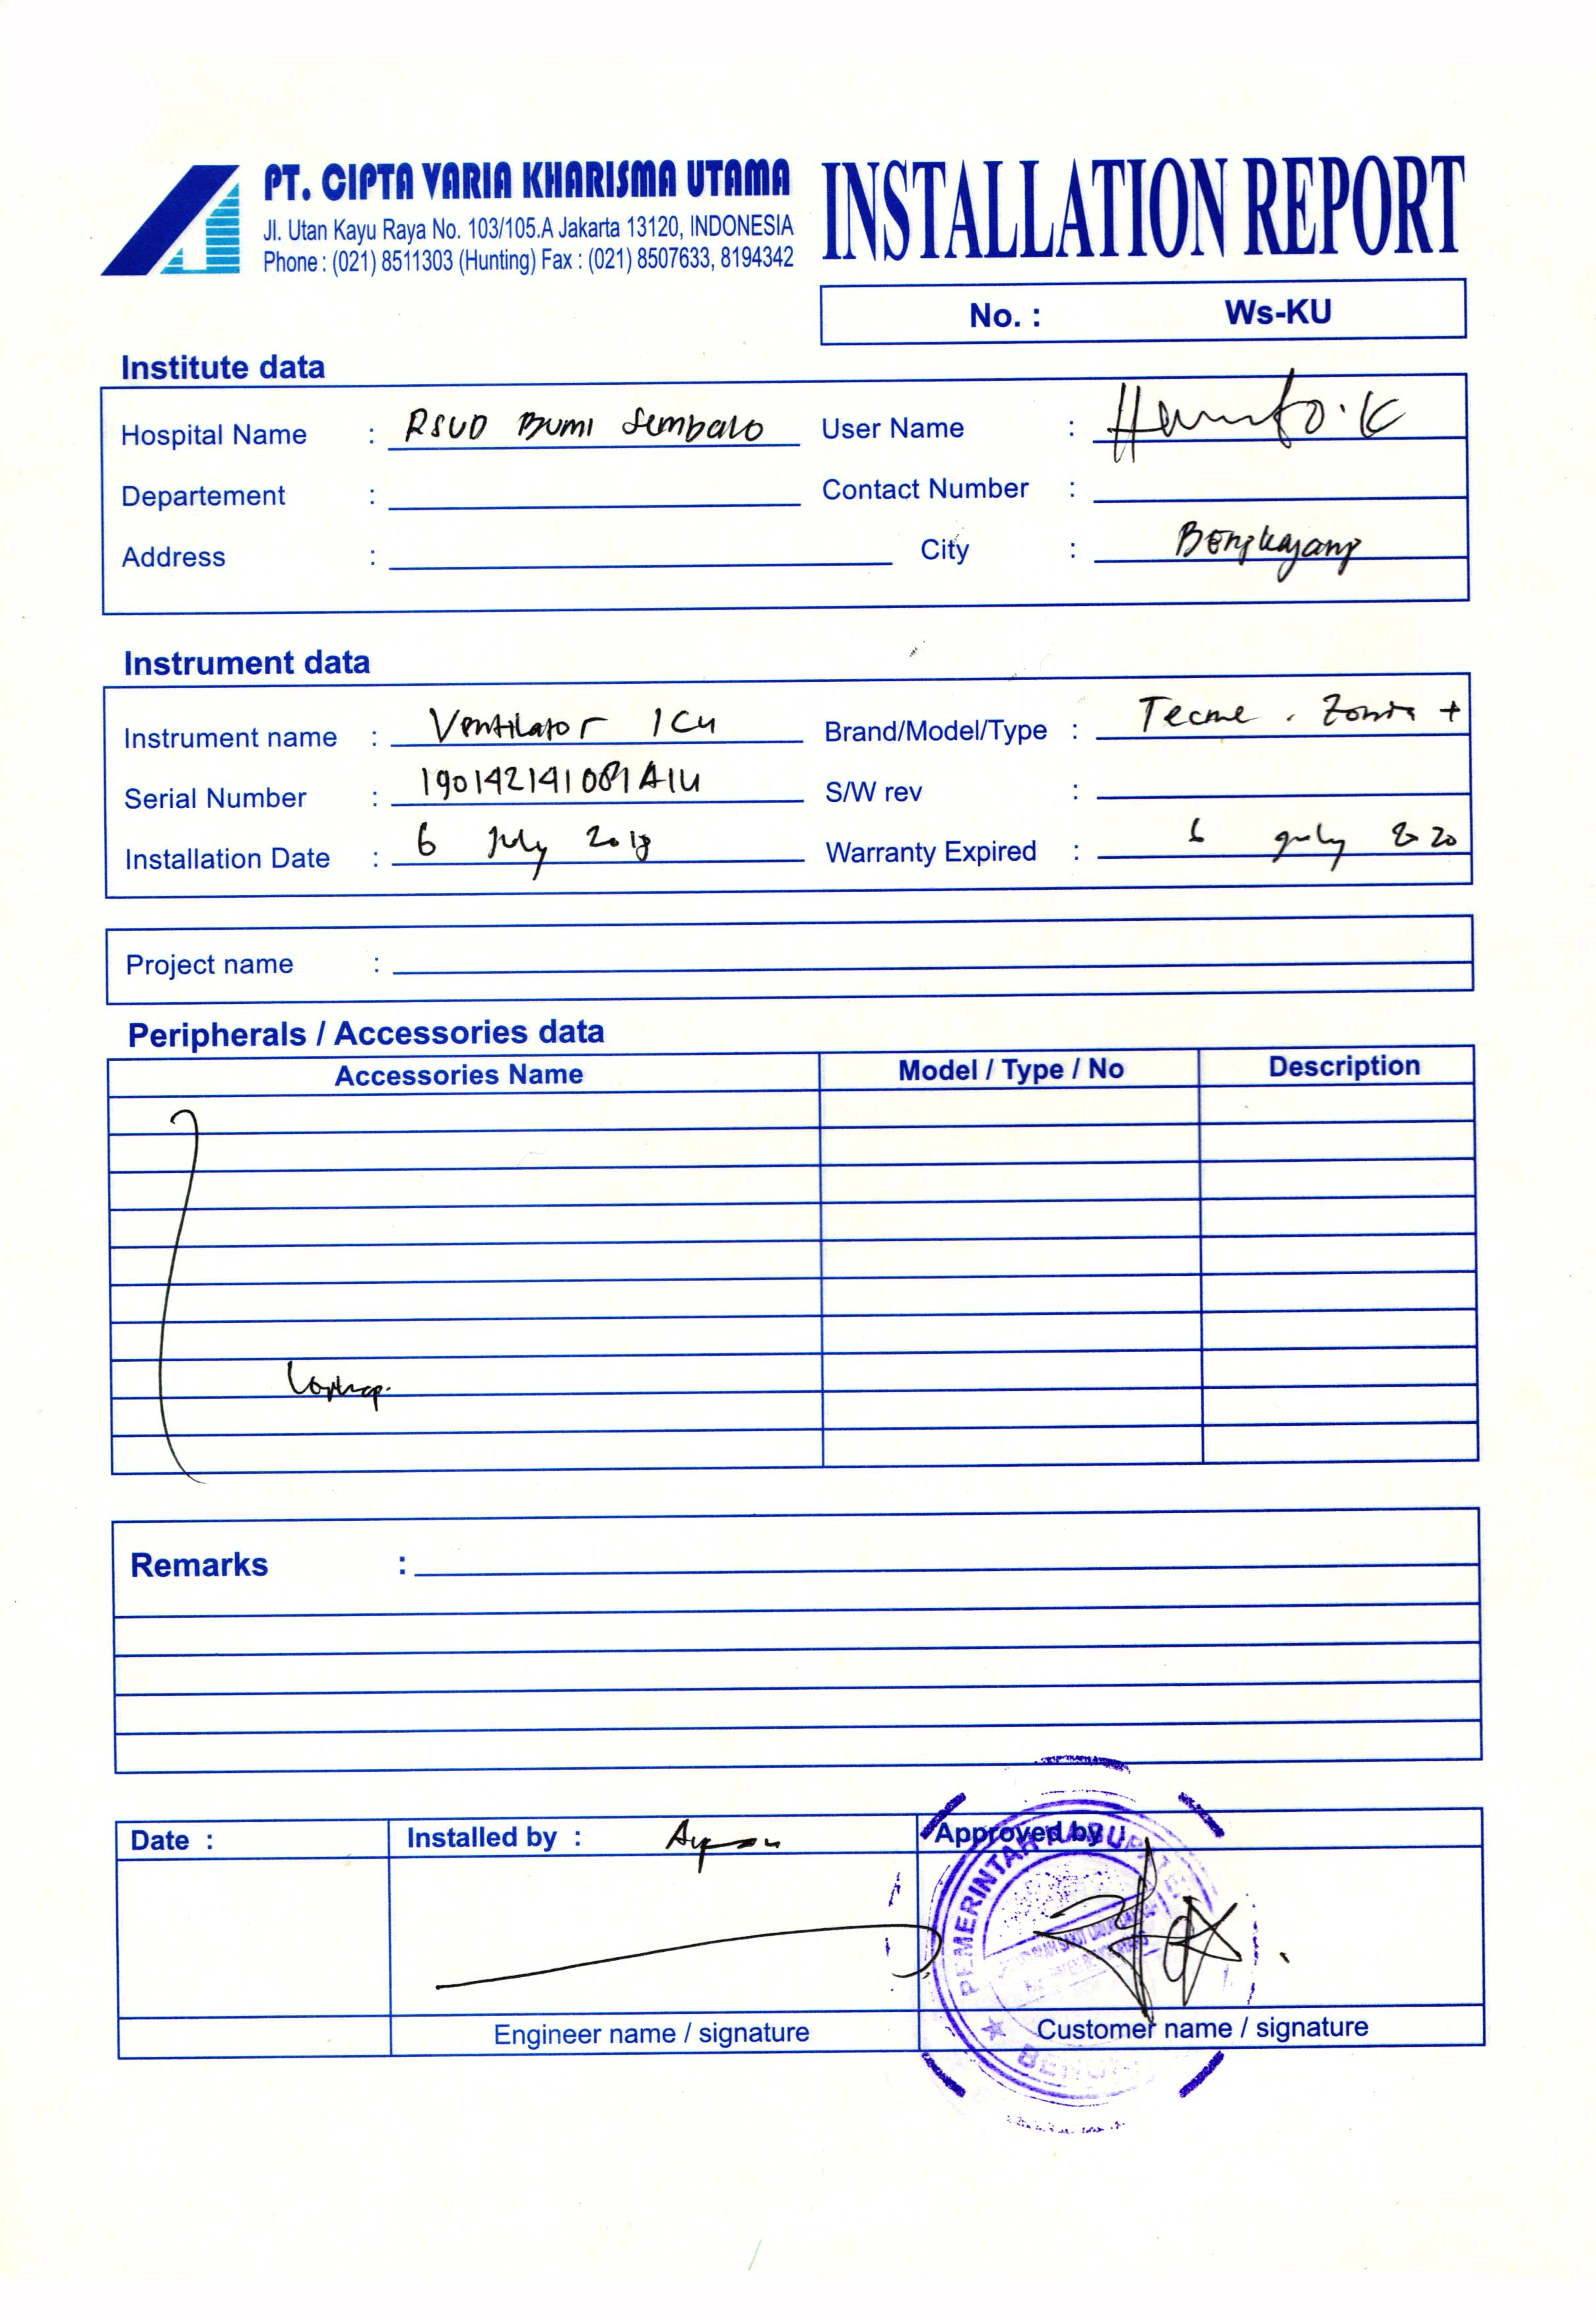 PT. CIPTA VARIA KHARISMA UTAMA
Jl. Utan Kayu Raya No. 103/105.A Jakarta 13120, INDONESIA
Phone : (021) 8511303 (Hunting) Fax : (021) 8507633, 8194342
INSTALLATION REPORT
No. : Ws-KU
Institute data
Hospital Name : RSUD Bumi Sembalo
User Name :
Departement :
Contact Number :
Address :
City : Bengkayang
Instrument data
Instrument name : Ventilator ICU
Brand/Model/Type : Tecme
Serial Number :
S/W rev :
Installation Date : 6 July
Warranty Expired : 6 July 2020
Project name :
Peripherals / Accessories data
Accessories Name Model / Type / No Description
Remarks :
Date : Installed by : Approved by :
PEMERINTAH KABUPATEN
Engineer name / signature Customer name / signature